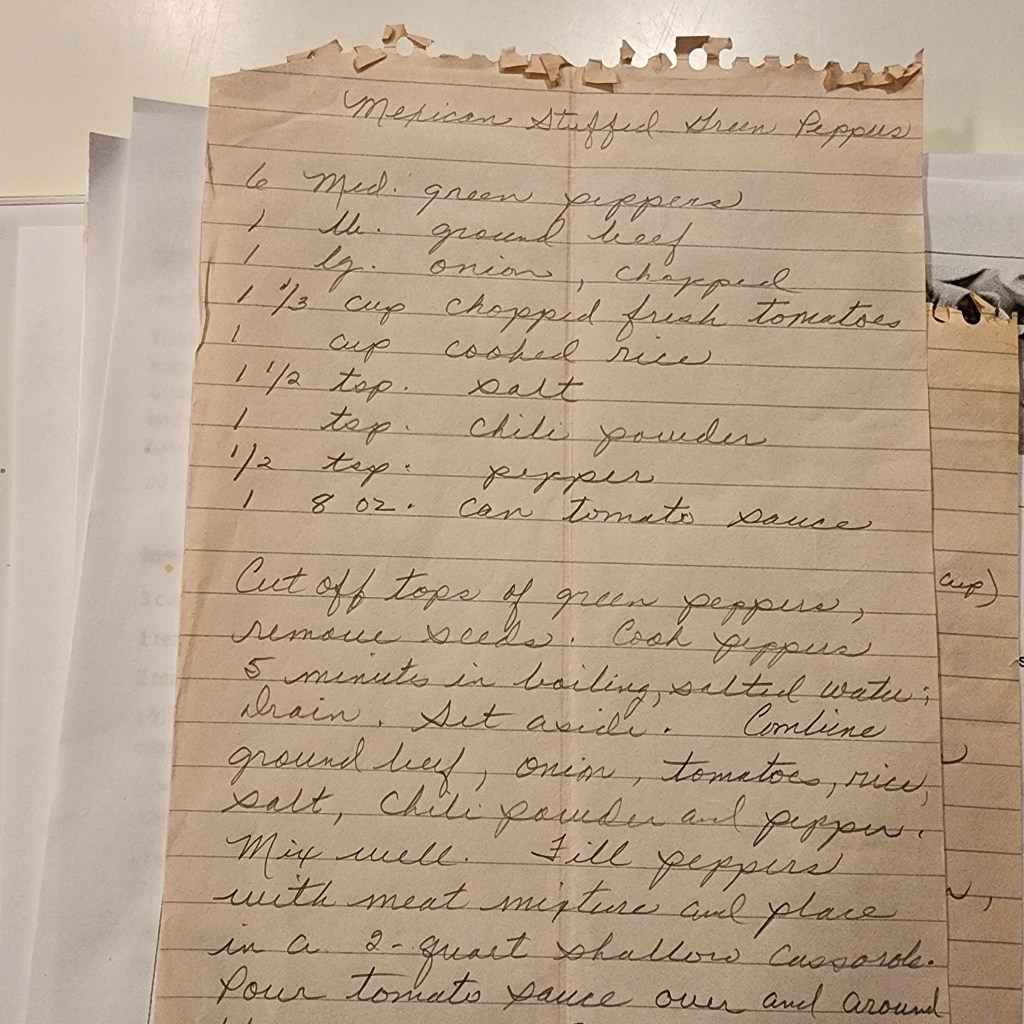 Mexican Stuffed Green Peppers
6 Med. green peppers
1 lb. ground beef
1 lg. onion, chopped
1 1/3 cup chopped fresh tomatoes
1 cup cooked rice
1 1/2 tsp. salt
1 tsp. chili powder
1/2 tsp. pepper
1 8 oz. can tomato sauce
Cut off tops of green peppers,
remove seeds. Cook peppers
5 minutes in boiling, salted water;
Drain. Set aside. Combine
ground beef, onion, tomatoes, rice,
salt, chili powder and pepper.
Mix well. Fill peppers
with meat mixture and place
in a 2-quart shallow casserole.
Pour tomato sauce over and around
cup)